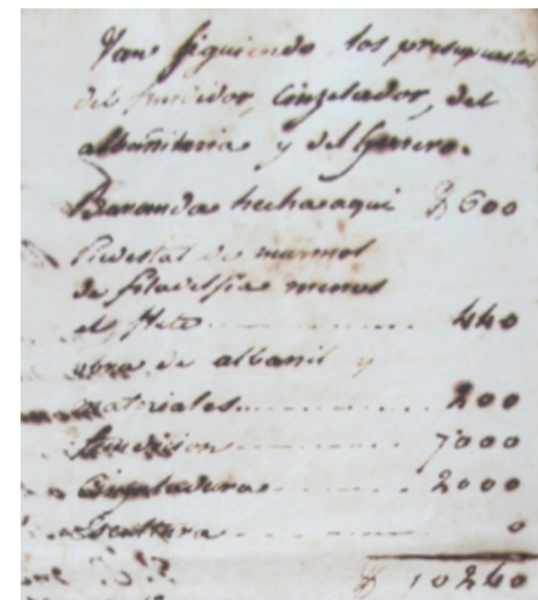 Van siguiendo los presupuestos
del fundidor, Cinzelador, del
albañileria y del Herrero.
Baranda hecha aqui $ 600
Piedestal de marmol
de filadelfia menos
el flete 440
obra de albanil y
materiales 200
fundicion 7000
Cinzeladura 2000
Escultura 0
$ 10240